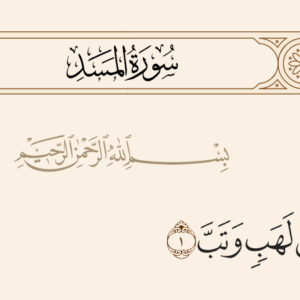 سُورَةُ المَسَدِ
بِسْمِ اللهِ الرَّحْمٰنِ الرَّحِيْمِ
لَهَبٍ وَتَبَّ ١